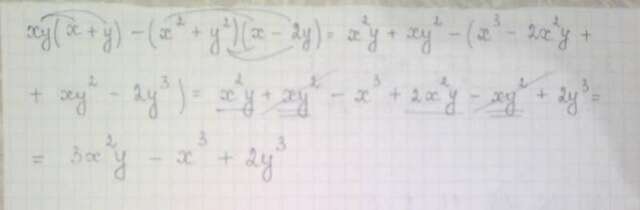 xy(x + y) − (x² + y²)(x − 2y) = x²y + xy² − (x³ − 2x²y +
+ xy² − 2y³) = x²y + xy² − x³ + 2x²y − xy² + 2y³ =
= 3x²y − x³ + 2y³